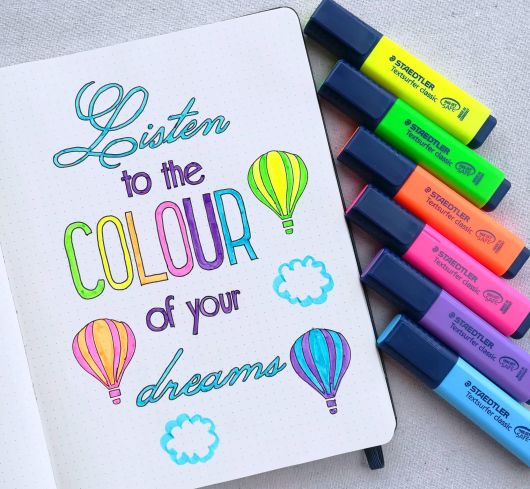 Listen
to the
COLOUR
of your
dreams
STAEDTLER
Textsurfer classic
STAEDTLER
Textsurfer classic
STAEDTLER
Textsurfer classic
STAEDTLER
Textsurfer classic
STAEDTLER
Textsurfer classic
STAEDTLER
Textsurfer classic